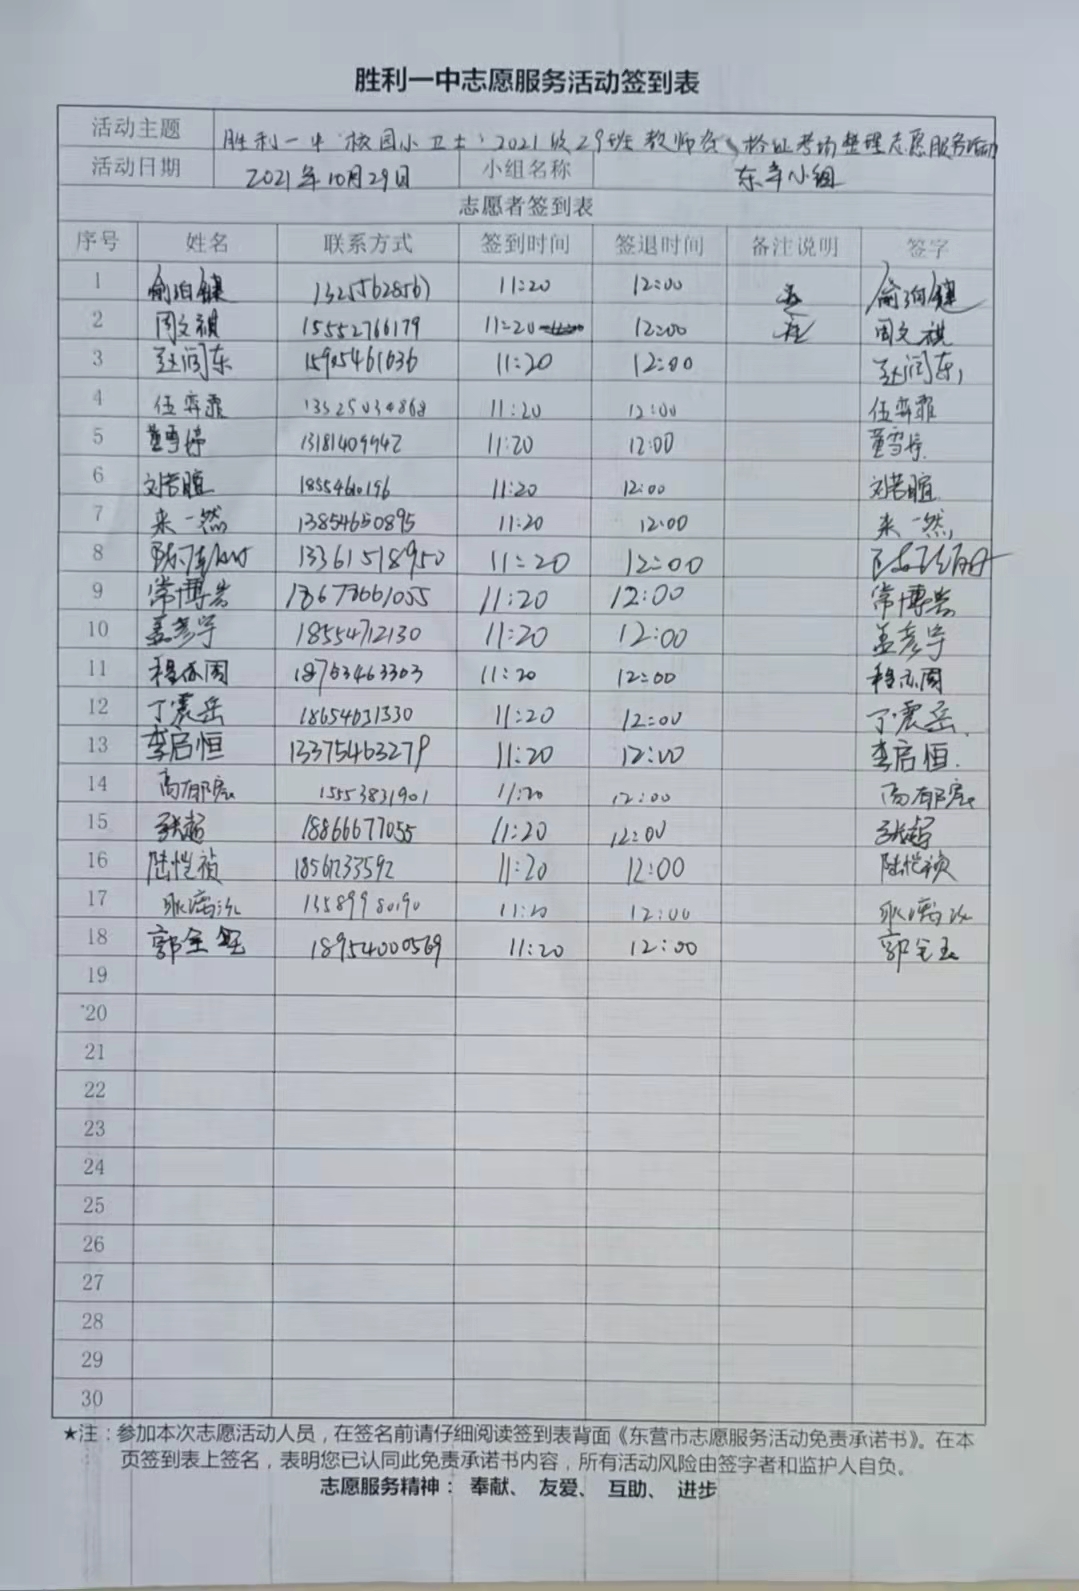 胜利一中志愿服务活动签到表
活动主题 胜利一中"校园小卫士"2021级29班教师资格证考场整理志愿服务活动
活动日期 2021年10月29日 小组名称 东辛小组
志愿者签到表
序号 姓名 联系方式 签到时间 签退时间 备注说明 签字
1 俞泊健 13255628567 11:20 12:00 俞泊健
2 周文祺 15552766179 11:20 12:00 周文祺
3 赵润东 15905461636 11:20 12:00 赵润东
4 伍弈霏 13325034868 11:20 12:00 伍弈霏
5 董雪婷 13181409942 11:20 12:00 董雪婷
6 刘若暄 11:20 12:00 刘若暄
7 来一然 13854650895 11:20 12:00 来一然
8 13361518950 11:20 12:00
9 常博岩 18678661055 11:20 12:00 常博岩
10 孟彦宇 18554712130 11:20 12:00 孟彦宇
11 程亦周 18763463303 11:20 12:00 程亦周
12 丁震岳 18654631330 11:20 12:00 丁震岳
13 李启恒 13375463279 11:20 12:00 李启恒
14 高郁宸 15553831901 11:20 12:00 高郁宸
15 张超 18866677055 11:20 12:00 张超
16 陆恺祯 18561233592 11:20 12:00 陆恺祯
17 13589980190 11:20 12:00
18 郭金玉 18954000569 11:20 12:00 郭金玉
19
20
21
22
23
24
25
26
27
28
29
30
★注：参加本次志愿活动人员，在签名前请仔细阅读签到表背面《东营市志愿服务活动免责承诺书》。在本
页签到表上签名，表明您已认同此免责承诺书内容，所有活动风险由签字者和监护人自负。
志愿服务精神： 奉献、 友爱、 互助、 进步